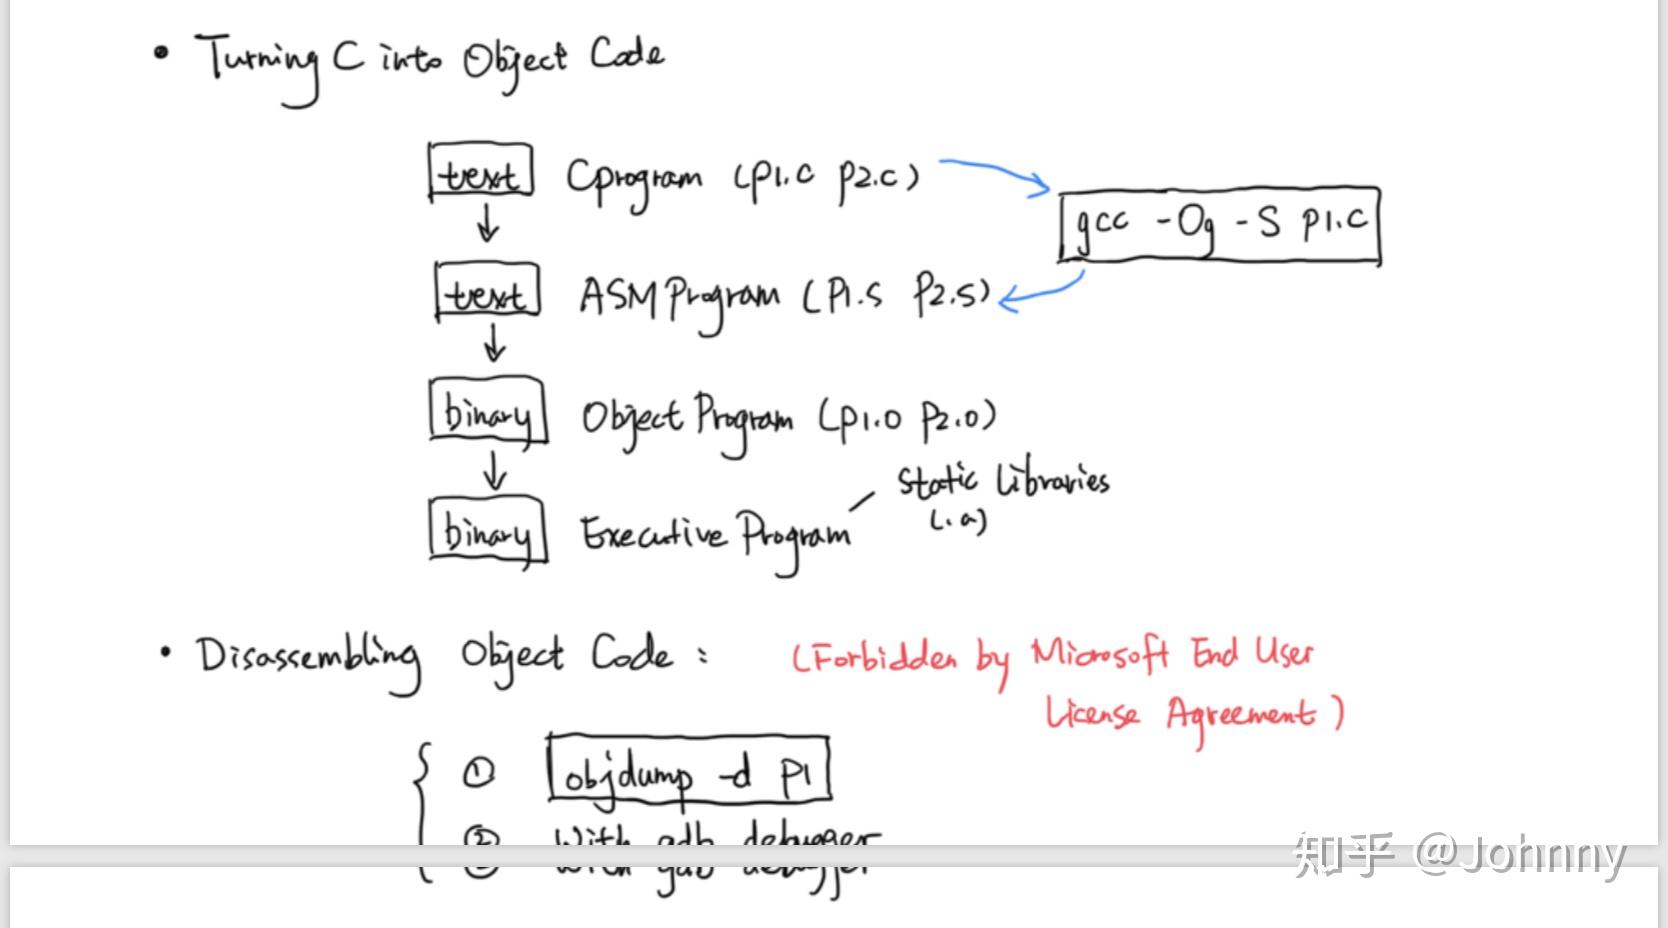 • Turning C into Object Code
text C program (p1.c p2.c)
gcc -Og -S p1.c
text ASM Program (P1.s P2.s)
binary Object Program (p1.o p2.o)
Static Libraries
(.a)
binary Executive Program
• Disassembling Object Code : (Forbidden by Microsoft End User
License Agreement)
① objdump -d p1
② With gdb debugger
知乎 @Johnny